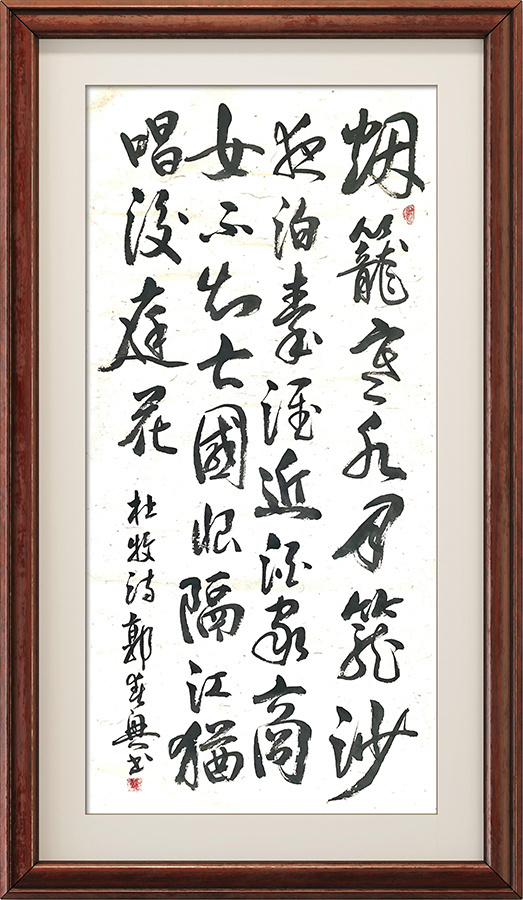 烟籠寒水月笼沙
夜泊秦淮近酒家商
女不知亡國恨隔江猶
唱後庭花
杜牧詩郭興書